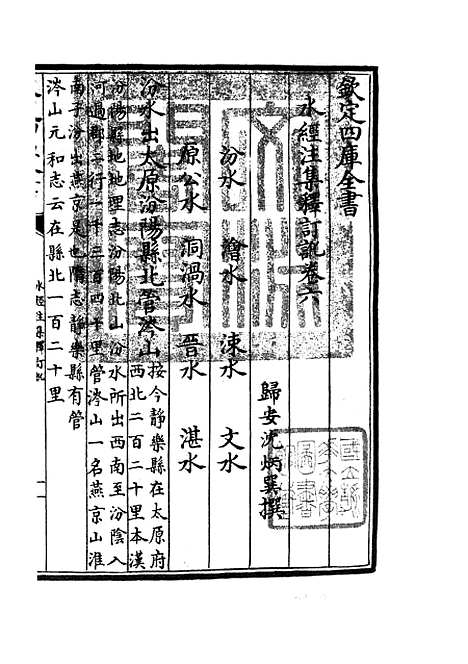 欽定四庫全書
水經注集釋訂訛卷六
歸安沈炳巽撰
汾水 澮水 涑水 文水
原公水 洞渦水 晉水 湛水
汾水出太原汾陽縣北管涔山按今静樂縣在太原府
西北二百二十里本漢
汾陽縣地地理志汾陽北山汾水所出西南至汾陰入
河過郡二行一千三百四十里管涔山一名燕京山淮
南子汾出燕京是也隋志静樂縣有管
涔山元和志云在縣北一百二十里
水經注集釋訂訛